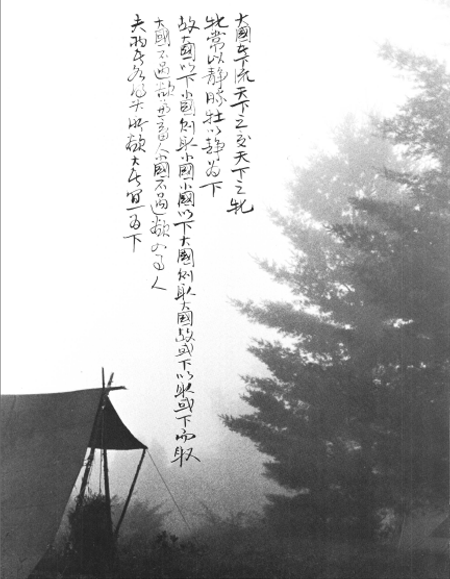 大國者下流天下之交天下之牝
牝常以靜勝牡以靜為下
故大國以下小國則取小國小國以下大國則取大國故或下以取或下而取
大國不過欲兼畜人小國不過欲入事人
夫兩者各得其所欲大者宜為下